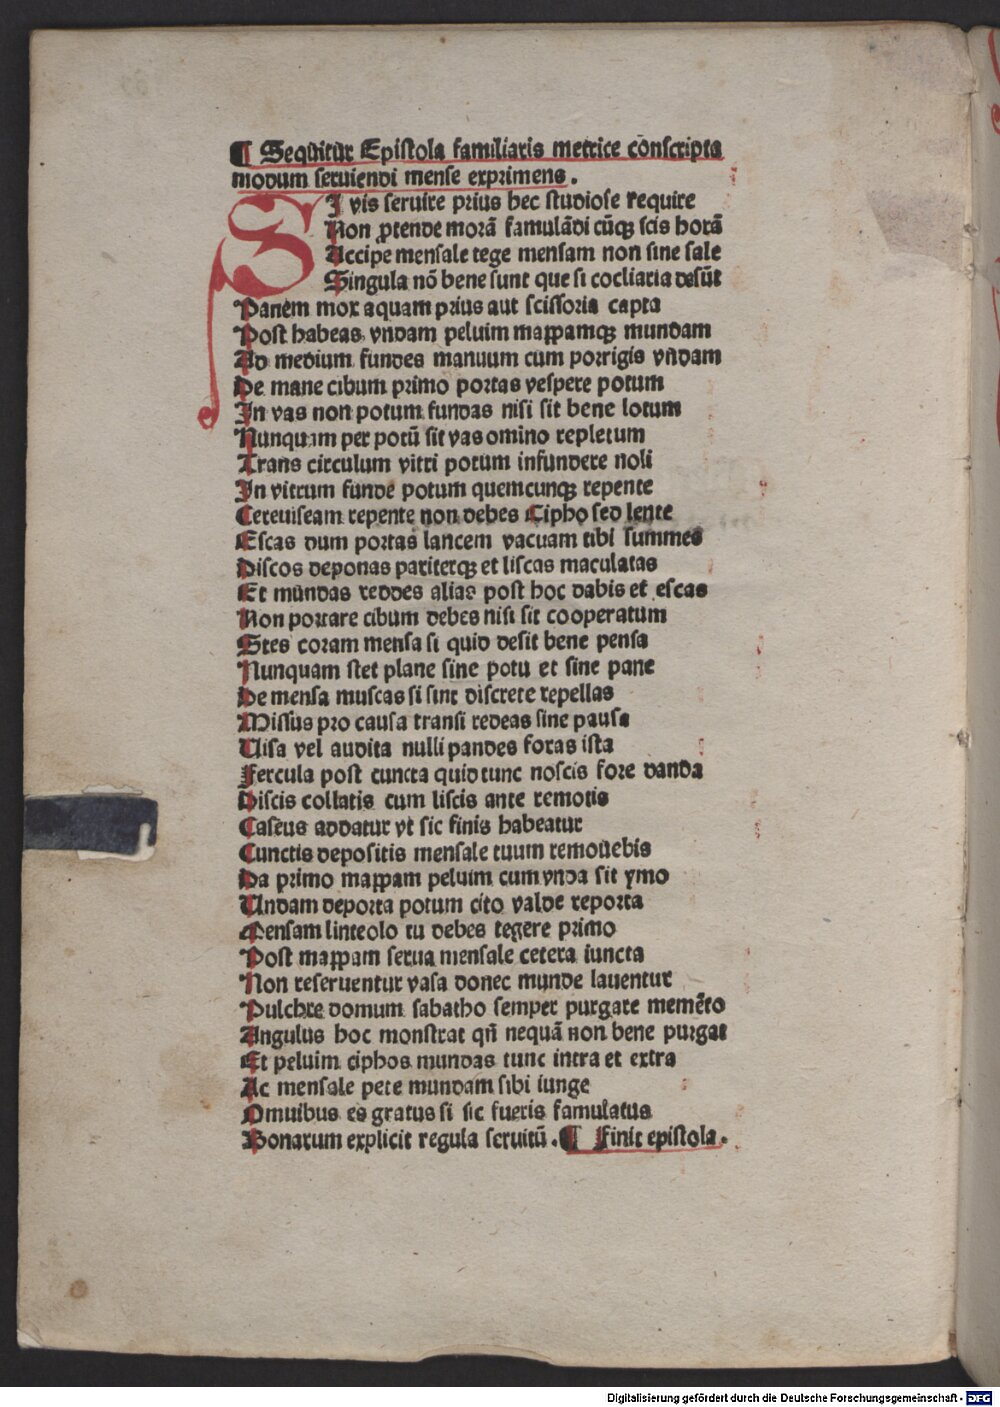 ¶ Sequitur Epistola familiaris metrice cōnscripta
modum seruiendi mense exprimens.
SI vis seruire prius hec studiose require
Non ꝓtende morā famulādi cūqꝫ scis horā
Accipe mensale tege mensam non sine sale
Singula nō bene sunt que si cocliaria desūt
Panem mox aquam prius aut scissoria capta
Post habeas vndam peluim mappamqꝫ mundam
Ad medium fundes manuum cum porrigis vndam
De mane cibum primo portas vespere potum
In vas non potum fundas nisi sit bene lotum
Nunquam per potū sit vas omino repletum
Trans circulum vitri potum infundere noli
In vitrum funde potum quemcunqꝫ repente
Cereuiseam repente non debes Cipho sed lente
Escas dum portas lancem vacuam tibi summes
Discos deponas pariterqꝫ et liscas maculatas
Et mundas reddes alias post hoc dabis et escas
Non portare cibum debes nisi sit cooperatum
Stes coram mensa si quid desit bene pensa
Nunquam stet plane sine potu et sine pane
De mensa muscas si sint discrete repellas
Missus pro causa transi redeas sine pausa
Uisa vel audita nulli pandes foras ista
Fercula post cuncta quid tunc noscis fore danda
Discis collatis cum liscis ante remotis
Caseus addatur vt sic finis habeatur
Cunctis depositis mensale tuum remouebis
Da primo mappam peluim cum vnda sit ymo
Undam deporta potum cito valde reporta
Mensam linteolo tu debes tegere primo
Post mappam serua mensale cetera iuncta
Non reseruentur vasa donec munde lauentur
Pulchre domum sabatho semper purgare memēto
Angulus hoc monstrat qn̄ nequā non bene purgat
Et peluim ciphos mundas tunc intra et extra
Ac mensale pete mundam sibi iunge
Omuibus es gratus si sic fueris famulatus
Bonarum explicit regula seruitū. ¶ Finit epistola.
Digitalisierung gefördert durch die Deutsche Forschungsgemeinschaft - DFG